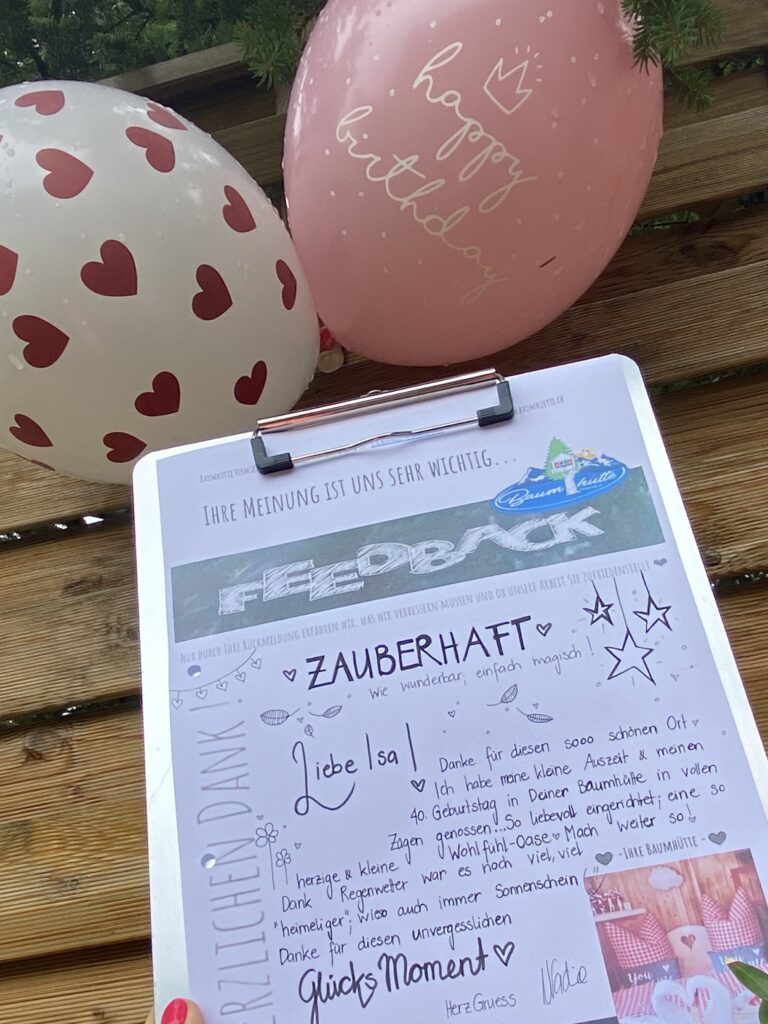 happy
birthday
BAUMHÜTTE.CH
IHRE MEINUNG IST UNS SEHR WICHTIG...
Baumhütte
FEEDBACK
NUR DURCH IHRE RÜCKMELDUNG ERFAHREN WIR, WAS WIR VERBESSERN MÜSSEN UND OB UNSERE ARBEIT SIE ZUFRIEDENSTELLT
ZAUBERHAFT
Wie wunderbar; einfach magisch!
Liebe Isa!
Danke für diesen sooo schönen Ort
Ich habe meine kleine Auszeit & meinen
40. Geburtstag in Deiner Baumhütte in vollen
Zügen genossen...So liebevoll eingerichtet; eine so
herzige & kleine Wohlfühl-Oase Mach weiter so!
Dank Regenwetter war es noch viel, viel
"heimeliger"; wieso auch immer Sonnenschein!
Danke für diesen unvergesslichen
GlücksMoment
HerzGruess Nadia
ERZLICHEN DANK!
-IHRE BAUMHÜTTE-
You